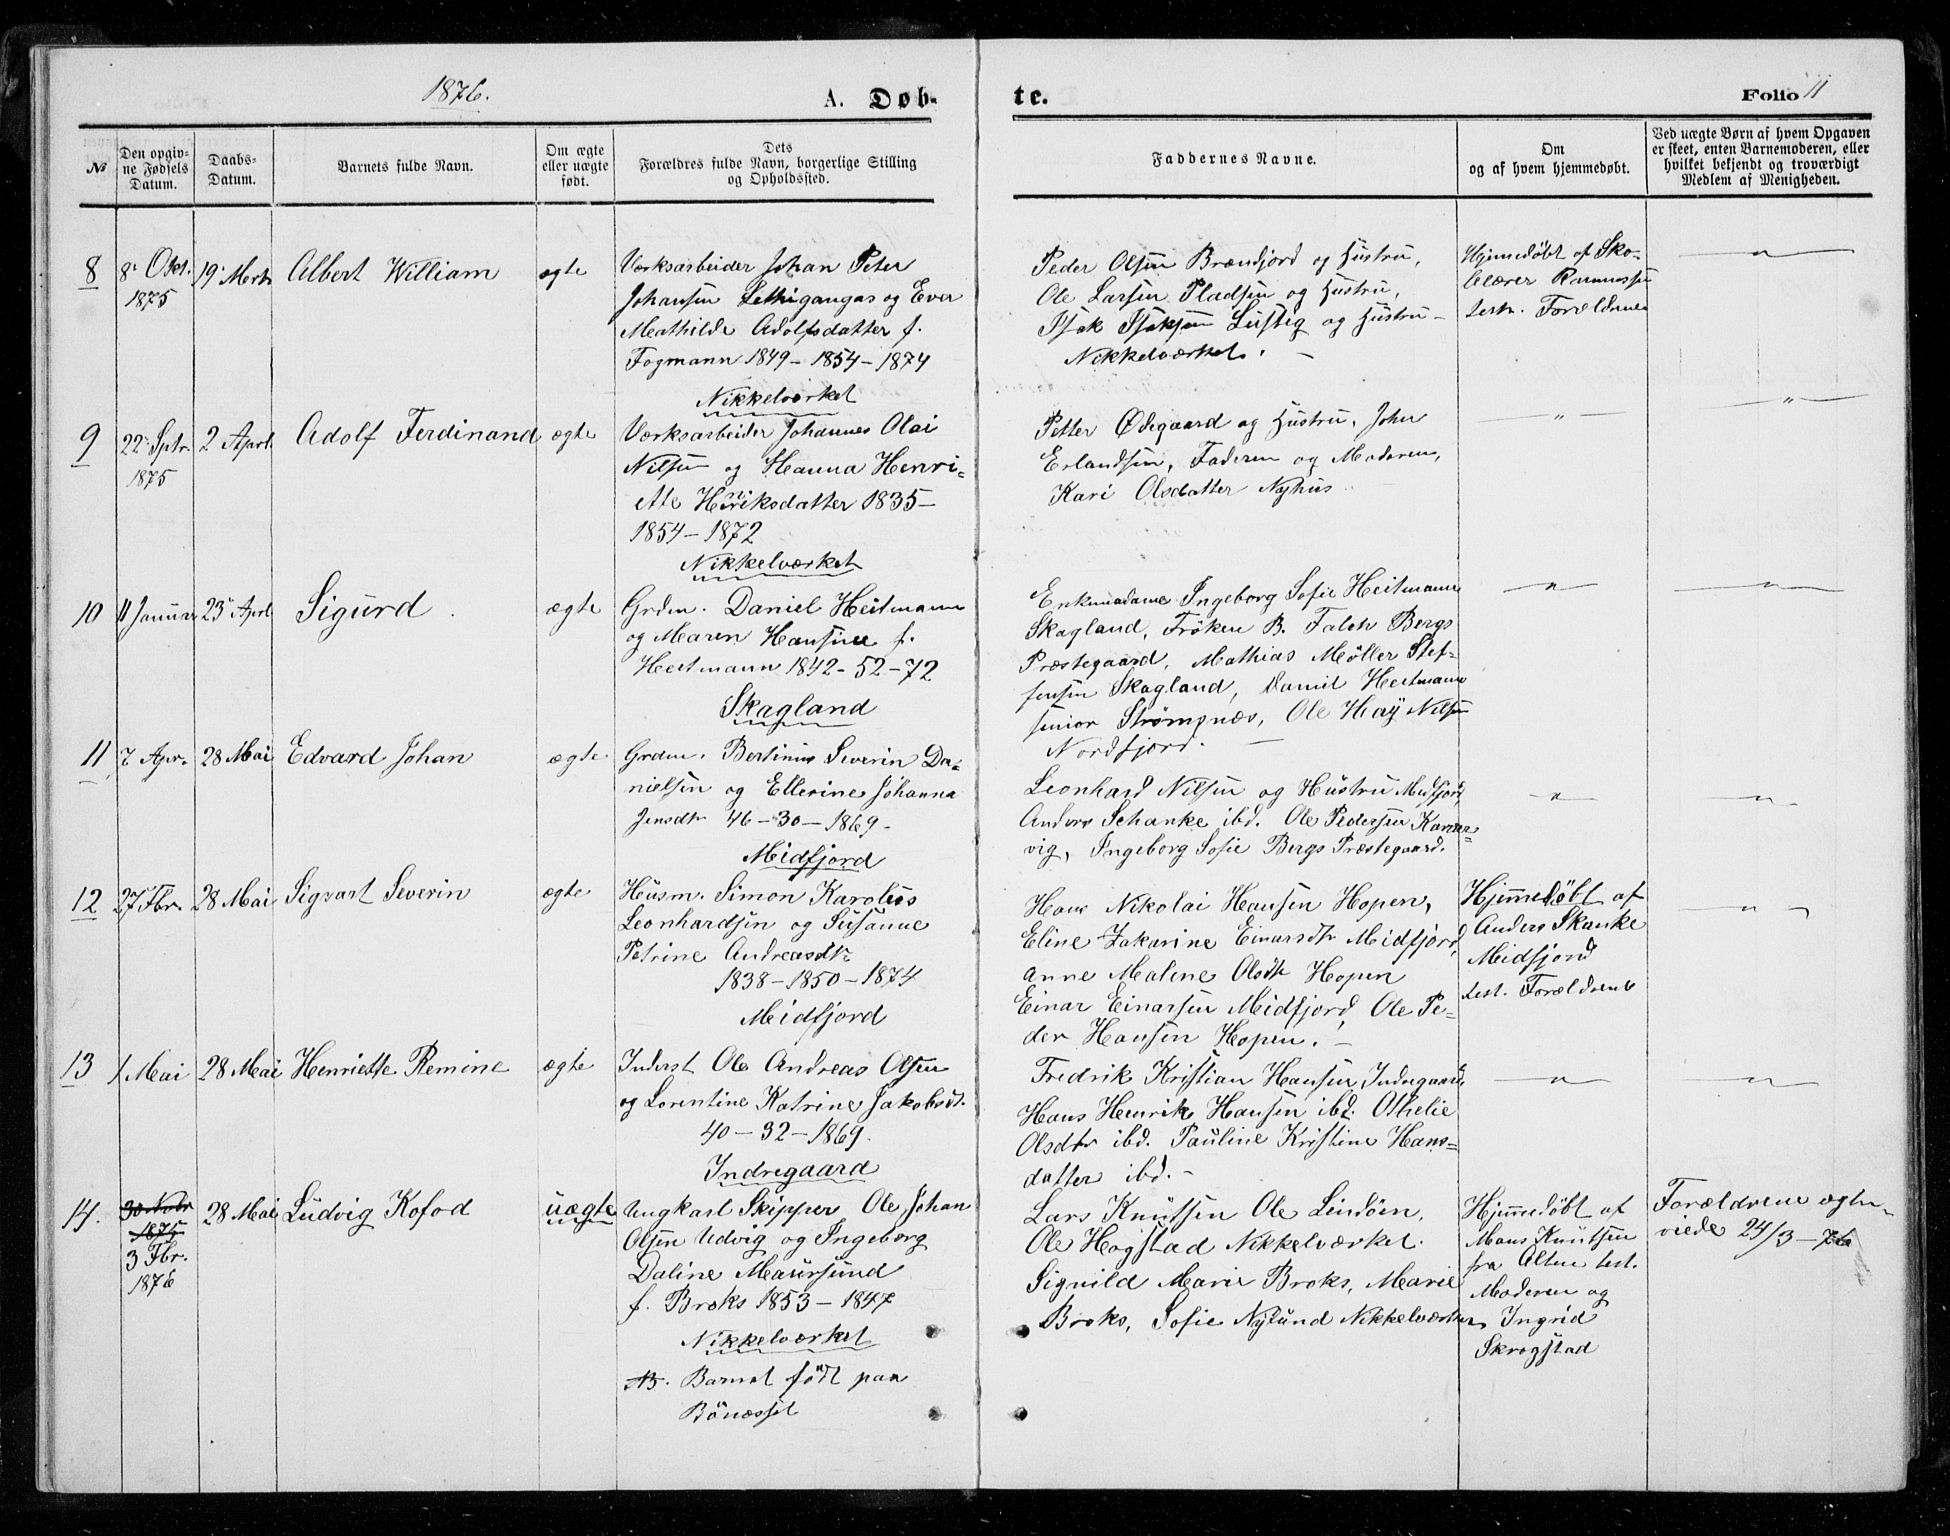 1876.
A. Døb-
te.
Folio 11
№
Den opgiv-
ne Fødsels
Datum.
Daabs-
Datum.
Barnets fulde Navn.
Om ægte
eller uægte
født.
Dets
Forældres fulde Navn, borgerlige Stilling
og Opholdssted.
Faddernes Navne.
Om
og af hvem hjemmedøbt.
Ved uægte Børn af hvem Opgaven
er skeet, enten Barnemoderen, eller
hvilket bekjendt og troværdigt
Medlem af Menigheden.
8
8 Okt.
1875
19 Marts
Albert William
ægte
Værksarbeider Johan Peter
Johansen og Ever
Mathilde Adolfsdatter f.
Fogmann 1849 - 1854 - 1874
Nikkelværket
Peder Olsen Brændjord og Hustru,
Ole Larsen Pladsen og Hustru,
Isak Isaksen Lustig og Hustru -
Nikkelværket. -
Hjemmedøbt af Sko-
lelærer Rasmussen
test. Forældrene
"
9
22 Sptr.
1875
2 April
Adolf Ferdinand
ægte
Værksarbeider Johannes Olai
Nilsen og Hanna Henri-
ette Henriksdatter 1835 -
1854 - 1872
Nikkelværket
Petter Ødegaard og Hustru, John
Erlandsen, Faderen og Moderen,
Kari Olsdatter Nyhus
"
"
10
11 Januar
23 April
Sigurd
ægte
Grdm. Daniel Heitmann
og Maren Hansine f.
Heitmann 1842 - 52 - 72
Skagland
Enkemadame Ingeborg Sofie Heitmann
Skagland, Frøken B. Falch Bergs
Præstegaard, Mathias Møller Stef-
fensen Skagland, Daniel Heitmann
senior Strømsnæs, Ole Høy Nilsen
Nordfjord. -
"
"
11
7 Apr.
28 Mai
Edvard Johan
ægte
Grdm. Bertinus Severin Da-
nielsen og Ellerine Johanna
Jensdtr 46 - 30 - 1869 -
Midfjord
Leonhard Nilsen og Hustru Midfjord,
Anders Schanke ibd. Ole Pedersen
vig, Ingeborg Sofie Bergs Præstegaard.
"
"
12
27 Fbr.
28 Mai
Sigvart Severin
ægte
Husm. Simon Karolius
Leonhardsen og Susanne
Petrine Andreasdtr
1838 - 1850 - 1874
Midfjord
Hans Nikolai Hansen Hopen,
Eline Zakarine Einarsdtr Midfjord,
Anne Malene Olsdtr Hopen
Einar Einarsen Midfjord, Ole Pe-
der Hansen Hopen. -
Hjemmedøbt af
Anders Skanke
Midfjord
test. Forældrene
"
13
1 Mai
28 Mai
Henriette Remine
ægte
Inderst Ole Andreas Olsen
og Lorentine Katrine Jakobsdt.
40 - 32 - 1869.
Indregaard
Fredrik Kristian Hansen Indregaard,
Hans Henrik Hansen ibd. Othelie
Olsdtr ibd. Pauline Kristine Hans-
datter ibd. -
"
"
14.
30 Novbr
1875
3 Fbr.
1876
28 Mai
Ludvig Kofod
uægte
Ungkarl Skipper Ole Johan
Olsen Udvig og Ingeborg
Daline Maursund
f. Broks 1853 - 1847
Nikkelværket
NB. Barnet født paa
Bönæsset
Lars Knutsen Ole Lindöen,
Ole Hogstad Nikkelværket.
Signild Marie Broks, Marie
Broks, Sofie Nylund Nikkelværket
Hjemmedøbt af
Mons Knutsen
fra Alten test.
Moderen og
Ingrid
Skrogstad
Forældrene ægte-
viede 24/3 - 76